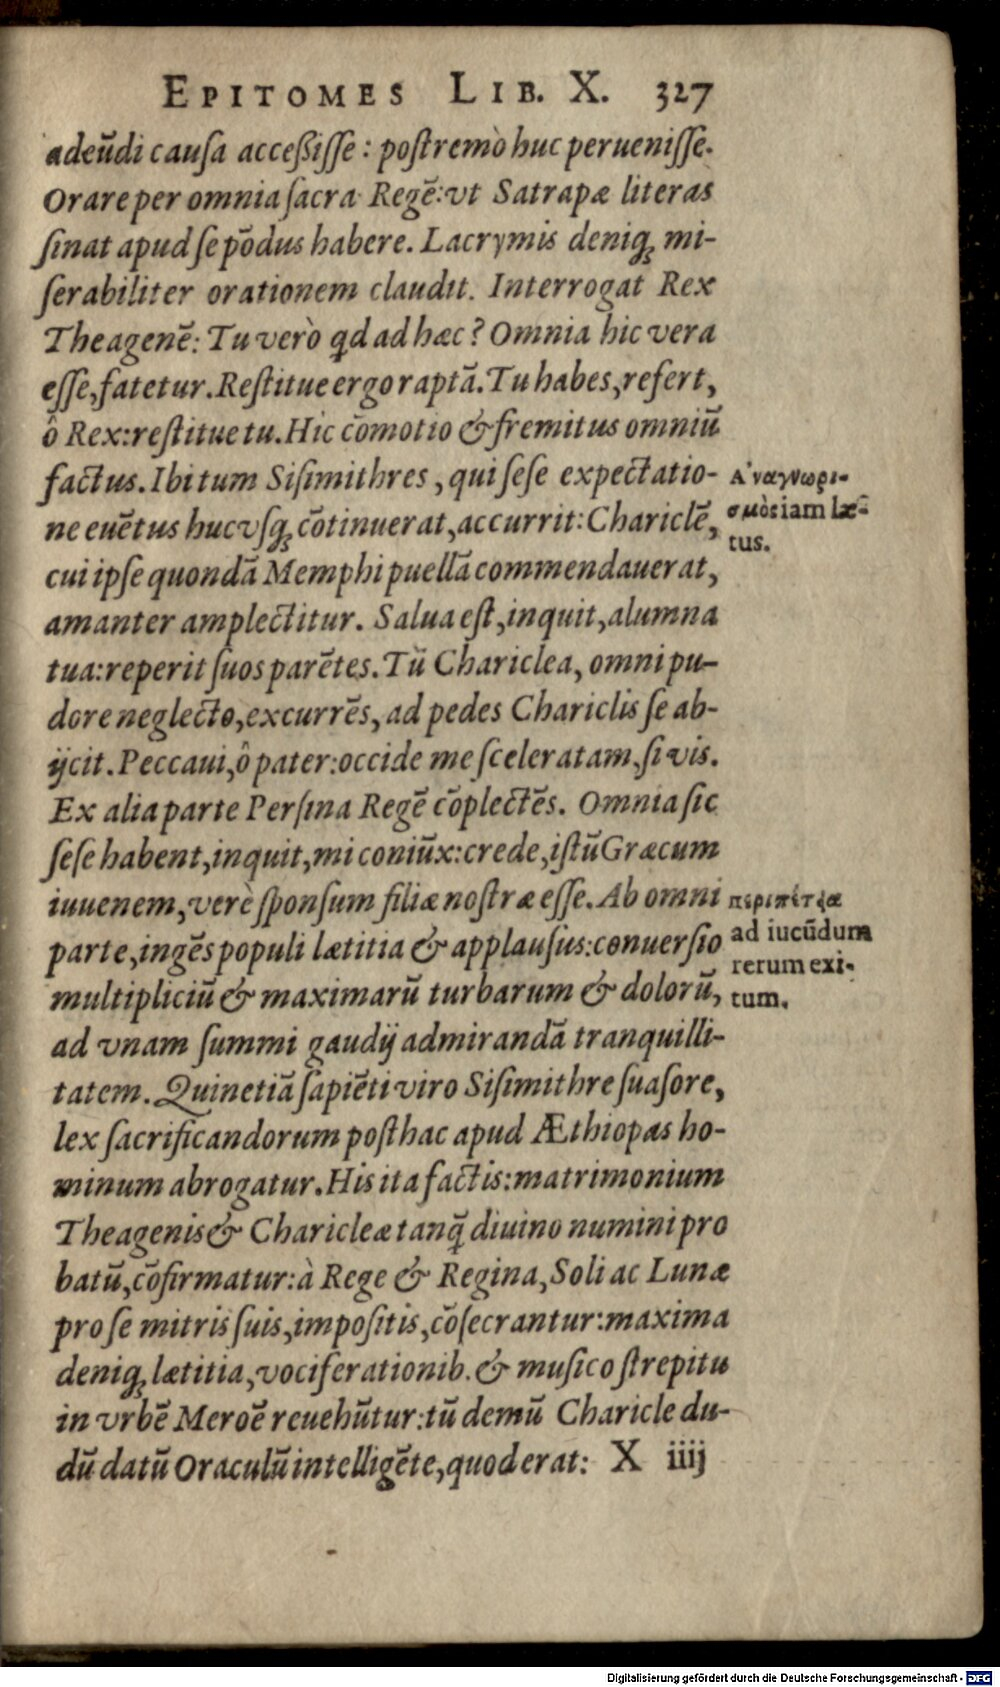 EPITOMES LIB. X. 327
adeūdi cauſa acceßiſſe : poſtremò huc perueniſſe.
Orare per omnia ſacra Regē: vt Satrapæ literas
ſinat apud ſe pōdus habere. Lacrymis deniq; mi-
ſerabiliter orationem claudit. Interrogat Rex
Theagenē: Tu verò qd ad hæc? Omnia hic vera
eſſe, fatetur. Reſtitue ergo raptā. Tu habes, refert,
ô Rex: reſtitue tu. Hic cōmotio & fremitus omniū
factus. Ibi tum Siſimithres, qui ſeſe expectatio-
ne euētus hucvſq; cōtinuerat, accurrit: Chariclē,
cui ipſe quondā Memphi puellā commendauerat,
amanter amplectitur. Salua eſt, inquit, alumna
tua: reperit ſuos parētes. Tū Chariclea, omni pu-
dore neglecto, excurrēs, ad pedes Chariclis ſe ab-
ijcit. Peccaui, ô pater: occide me ſceleratam, ſi vis.
Ex alia parte Perſina Regē cōplectēs. Omnia ſic
ſeſe habent, inquit, mi coniūx: crede, iſtū Græcum
iuuenem, verè ſponſum filiæ noſtræ eſſe. Ab omni
parte, ingēs populi lætitia & applauſus: conuerſio
multipliciū & maximarū turbarum & dolorū,
ad vnam ſummi gaudij admirandā tranquilli-
tatem. Quinetiā ſapiēti viro Siſimithre ſuaſore,
lex ſacrificandorum poſthac apud Æthiopas ho-
minum abrogatur. His ita factis: matrimonium
Theagenis & Charicleæ tanq̄ diuino numini pro
batū, cōfirmatur: à Rege & Regina, Soli ac Lunæ
pro ſe mitris ſuis, impoſitis, cōſecrantur: maxima
deniq; lætitia, vociferationib. & muſico ſtrepitu
in vrbē Meroē reuehūtur: tū demū Charicle du-
dū datū Oraculū intelligēte, quod erat: X iiij
Ἀναγνωρι-
σμὸς iam læ-
tus.
περιπέτειᾳ
ad iucūdum
rerum exi-
tum.
Digitalisierung gefördert durch die Deutsche Forschungsgemeinschaft - DFG